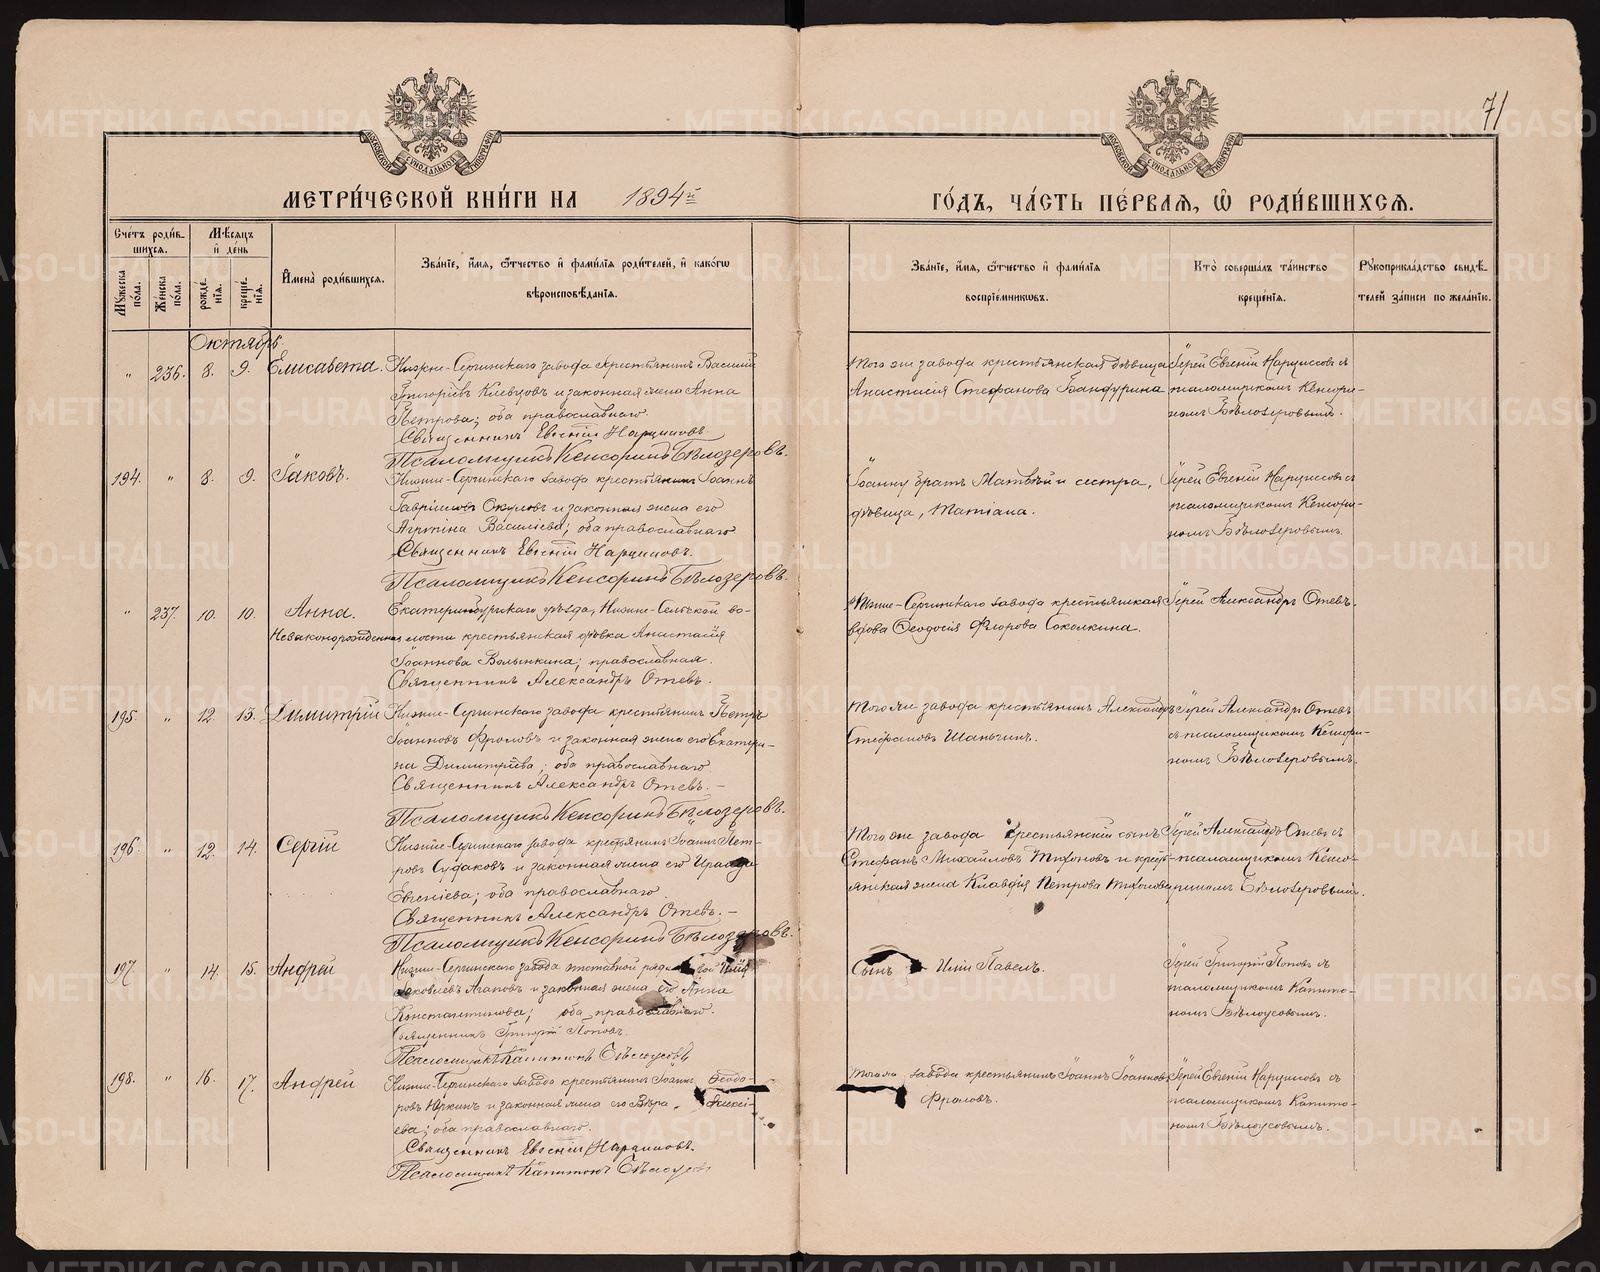 71
МОСКОВСКОЙ СѴНОДАЛЬНОЙ ТИПОГРАФІИ
МОСКОВСКОЙ СѴНОДАЛЬНОЙ ТИПОГРАФІИ
МЕТРИ́ЧЕСКОЙ КНИ́ГИ НА 1894й
ГО́ДЪ, ЧА́СТЬ ПЕ́РВАЯ, Ѡ РОДИ́ВШИХСЯ.
Сче́тъ роди́в-
шихся.
Мѣ́сяцъ
и де́нь
Мꙋ́жеска по́ла.
Же́нска по́ла.
рожде́нїя.
креще́нїя.
И҆мена̀ роди́вшихся.
Зва́нїе, и҆́мя, ѻ҆́тчество и҆ фами́лїя роди́телей, и҆ како́гѡ
вѣроисповѣ́данїя.
Зва́нїе, и҆́мя, ѻ҆́тчество и҆ фами́лїя
воспрїе́мникѡвъ.
Кто̀ соверша́лъ та́инство
креще́нїя.
Рꙋкоприкла́дство свидѣ́-
телей за́писи по жела́нїю.
Октябрь.
" 236. 8. 9. Елисавета. Нижне-Сергинскаго завода крестьянинъ Василій
Григоріевъ Клевцовъ и законная жена Анна
Петрова; оба православнаго.
Священникъ Евгеній Нарциссовъ
Псаломщикъ Кенсоринъ Бѣлозеровъ.
Того же завода крестьянская дѣвица
Анастасія Стефанова Бандурина
Іерей Евгеній Нарциссовъ съ
псаломщикомъ Кенсори-
номъ Бѣлозеровымъ.
194. " 8. 9. Іаковъ. Нижне-Сергинскаго завода крестьянинъ Іоаннъ
Гавріиловъ Окуловъ и законная жена его
Агрипина Василіева; оба православнаго
Священникъ Евгеній Нарциссовъ.
Псаломщикъ Кенсоринъ Бѣлозеровъ.
Іоанну братъ Матвѣй и сестра,
дѣвица, Татіана.
Іерей Евгеній Нарциссовъ съ
псаломщикомъ Кенсори-
номъ Бѣлозеровымъ.
" 237. 10. 10. Анна. Екатеринбургскаго уѣзда, Нижне-Селвской во-
Незаконорожденная лости крестьянская дѣвка Анастасія
Іоаннова Волынкина; православная.
Священникъ Александръ Отевъ.
Нижне-Сергинскаго завода крестьянская
вдова Ѳеодосія Флорова Соколкина.
Іерей Александръ Отевъ.
195. " 12. 13. Димитрій Нижне-Сергинскаго завода крестьянинъ Петръ
Іоанновъ Фроловъ и законная жена его Екатери-
на Димитріева; оба православнаго.
Священникъ Александръ Отевъ.-
Псаломщикъ Кенсоринъ Бѣлозеровъ.
Того же завода крестьянинъ Александръ
Стефановъ Шаньгинъ.
Іерей Александръ Отевъ
съ псаломщикомъ Кенсори-
номъ Бѣлозеровымъ.
196. " 12. 14. Сергій Нижне-Сергинскаго завода крестьянинъ Іоаннъ Пет-
ровъ Судаковъ и законная жена его Ираида
Евгеніева; оба православнаго
Священникъ Александръ Отевъ.-
Псаломщикъ Кенсоринъ Бѣлозеровъ.
Того же завода крестьянскій сынъ
Стефанъ Михайловъ Тихоновъ и кресть-
янская жена Клавдія Петрова Тихонова
Іерей Александръ Отевъ съ
псаломщикомъ Кенсо-
риномъ Бѣлозеровымъ.
197. " 14. 15. Андрей Нижне-Сергинскаго завода отставной рядовой Илія
Іаковлевъ Агаповъ и законная жена его Анна
Константинова; оба православнаго.
Священникъ Григорій Поповъ.
Псаломщикъ Капитонъ Бѣлоусовъ
Сынъ Иліи Павелъ.
Іерей Григорій Поповъ съ
псаломщикомъ Капито-
номъ Бѣлоусовымъ.
198. " 16. 17. Андрей Нижне-Сергинскаго завода крестьянинъ Іоаннъ Ѳеодо-
ровъ Юркинъ и законная жена его Вѣра Алексі-
ева; оба православнаго.
Священникъ Евгеній Нарциссовъ.
Псаломщикъ Капитонъ Бѣлоусовъ
Того же завода крестьянинъ Іоаннъ Іоанновъ
Фроловъ.
Іерей Евгеній Нарциссовъ съ
псаломщикомъ Капито-
номъ Бѣлоусовымъ.
METRIKI.GASO-URAL.RU